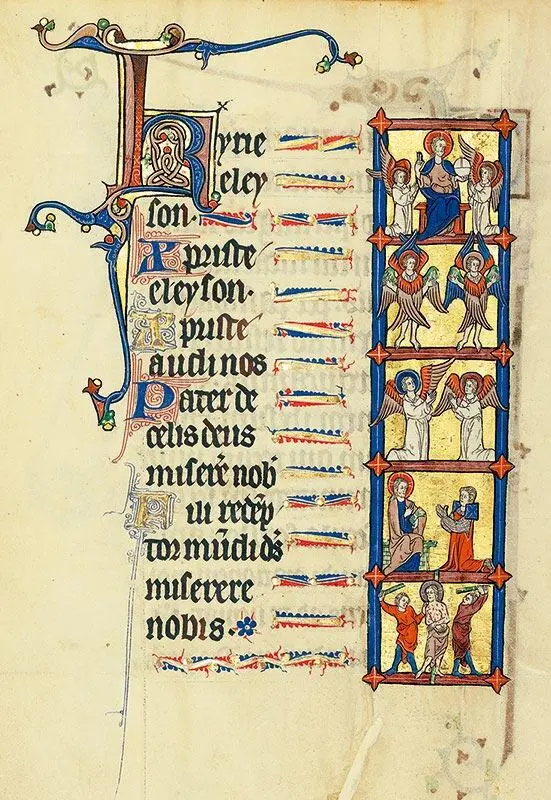 Kyrie
eley
son.
Xpriste
eleyson.
Xpriste
audi nos
Pater de
celis deus
miserē nob
Fili redēp
tor mūdi ds
miserere
nobis.